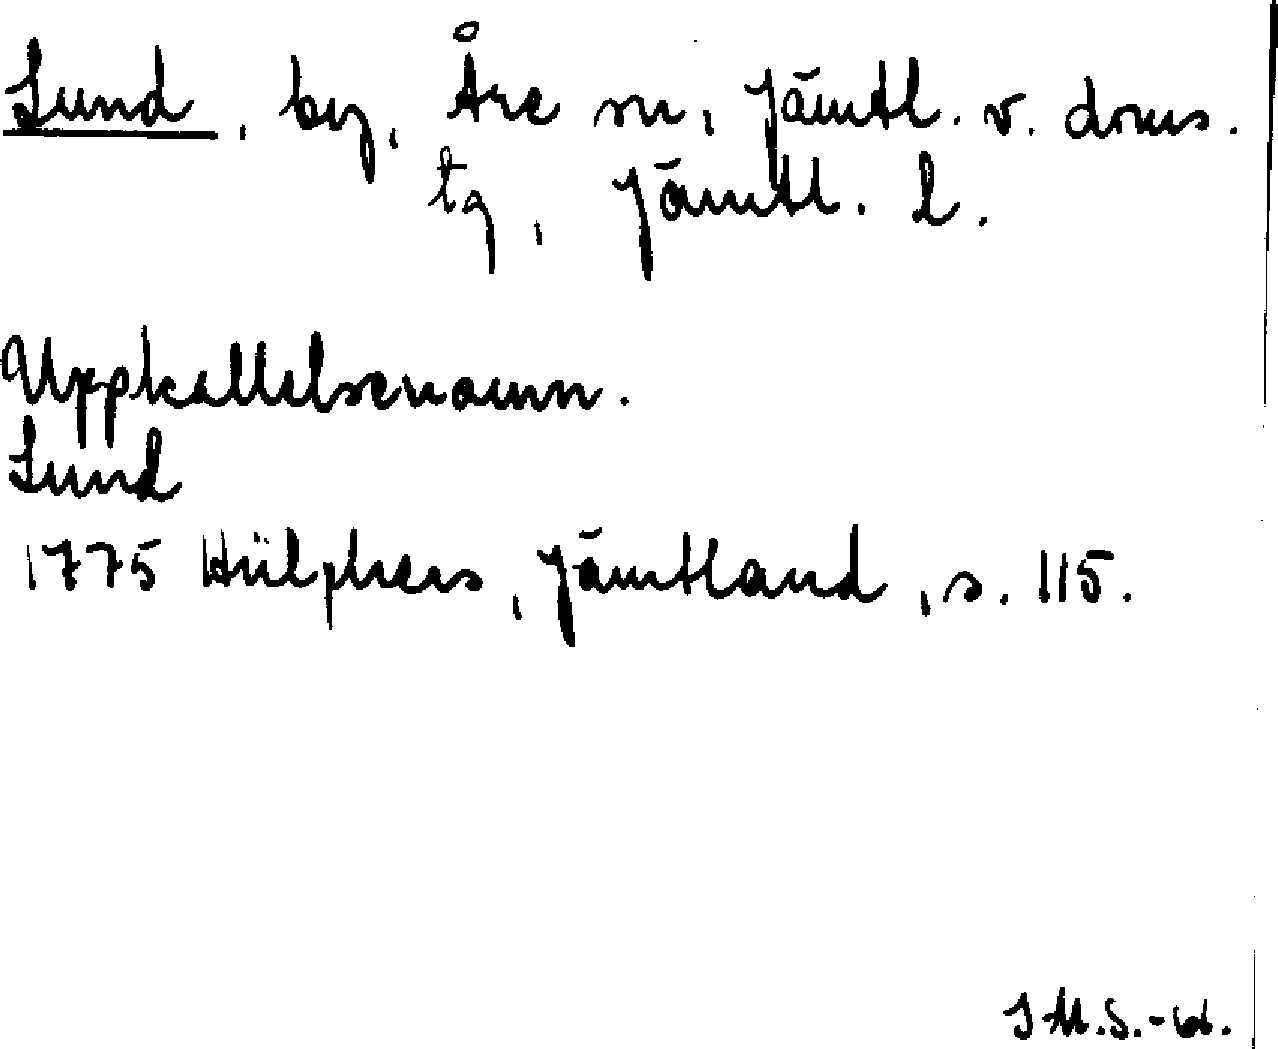 Lund, by, Åre sn, Jämtl. v. doms.
tg, Jämtl. l.
Uppkallelsenamn.
Lund
1775 Hülphers, Jämtland, s. 115.